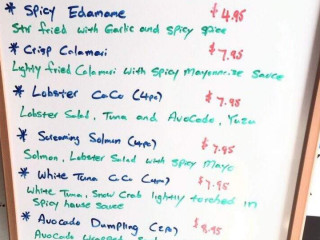 * Spicy Edamame $4.95
Stir fried with Garlic and Spicy spice
* Crisp Calamari $7.95
Lightly fried Calamari with spicy Mayonnaize Sauce
* Lobster CoCo (4pc) $7.95
Lobster Salad, Tuna and Avocado, Yuzu
* Screaming Salmon (4pc) $7.95
Salmon, Lobster Salad with spicy Mayo
* White Tuna CoCo (4pc) $7.95
White Tuna, Snow Crab lightly torched in
Spicy house Sauce
* Avocado Dumpling (2pc) $8.95
Avocado Wrapped